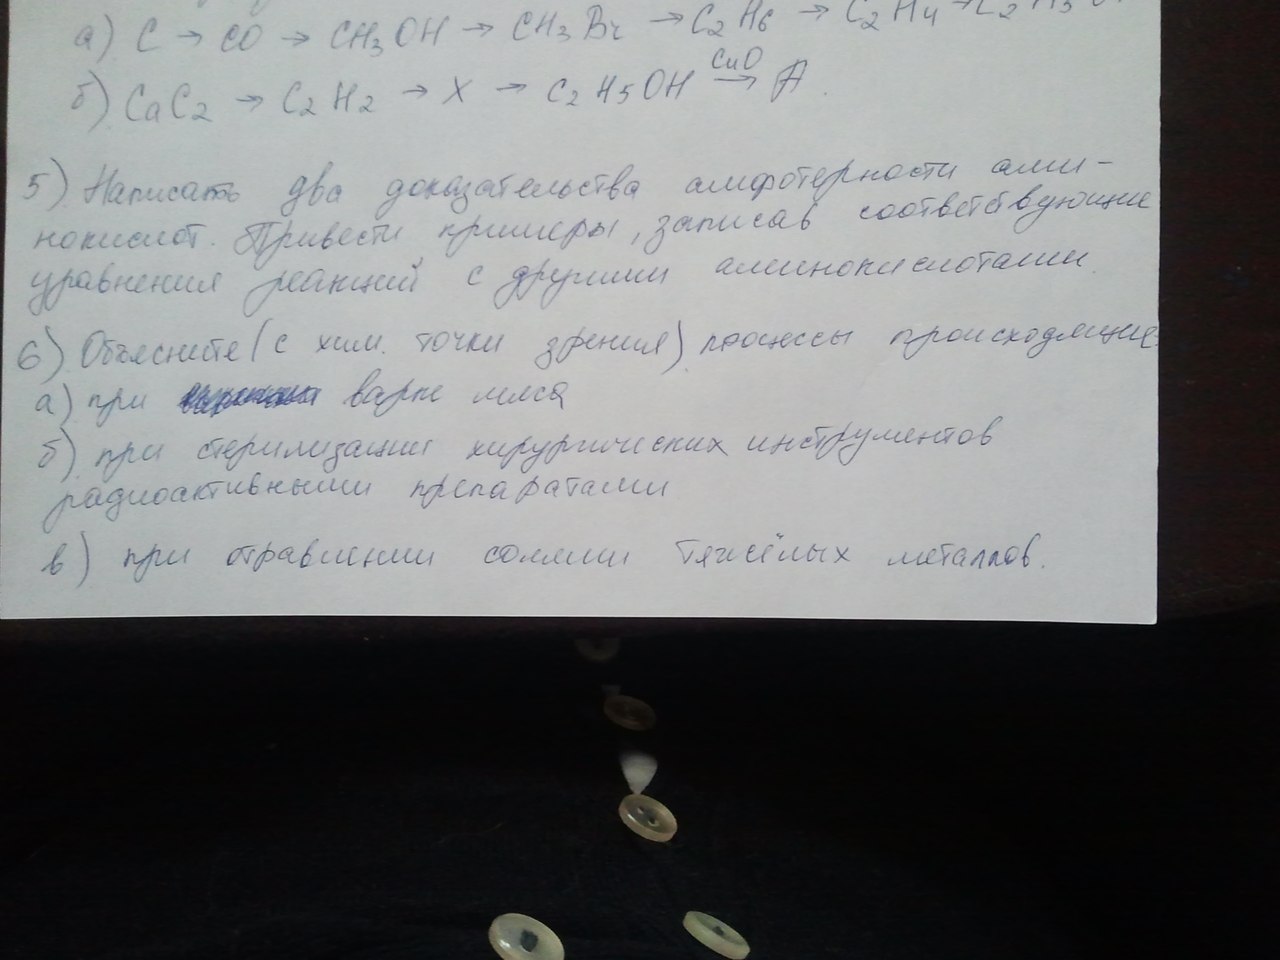 а) C → CO → CH3OH → CH3Br → C2H6 → C2H4 →
б) CaC2 → C2H2 → X → C2H5OH CuO → A.
5) Написать два доказательства амфотерности ами-
нокислот. Привести примеры, записав соответствующие
уравнения реакций с другими аминокислотами.
6) Объясните (с хим. точки зрения) процессы происходящие:
а) при варке мяса
б) при стерилизации хирургических инструментов
радиоактивными препаратами
в) при отравлении солями тяжёлых металлов.